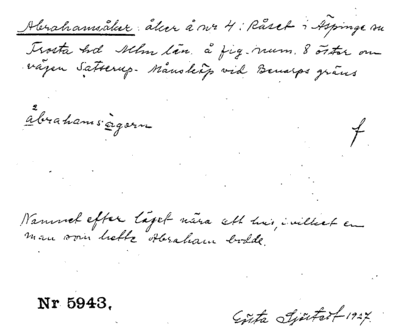 Abrahamsåker: åker å nr 4 i Råset i Äspinge sn
Frosta hd Mlm län. å fig. num. 8 öster om
vägen Satserup - Månsköp vid Benarps gräns
åbrahamsågorn
f
Namnet efter läget nära ett hus, i vilket en
man som hette Abraham bodde.
Nr 5943.
Gösta Sjöstedt 1927.